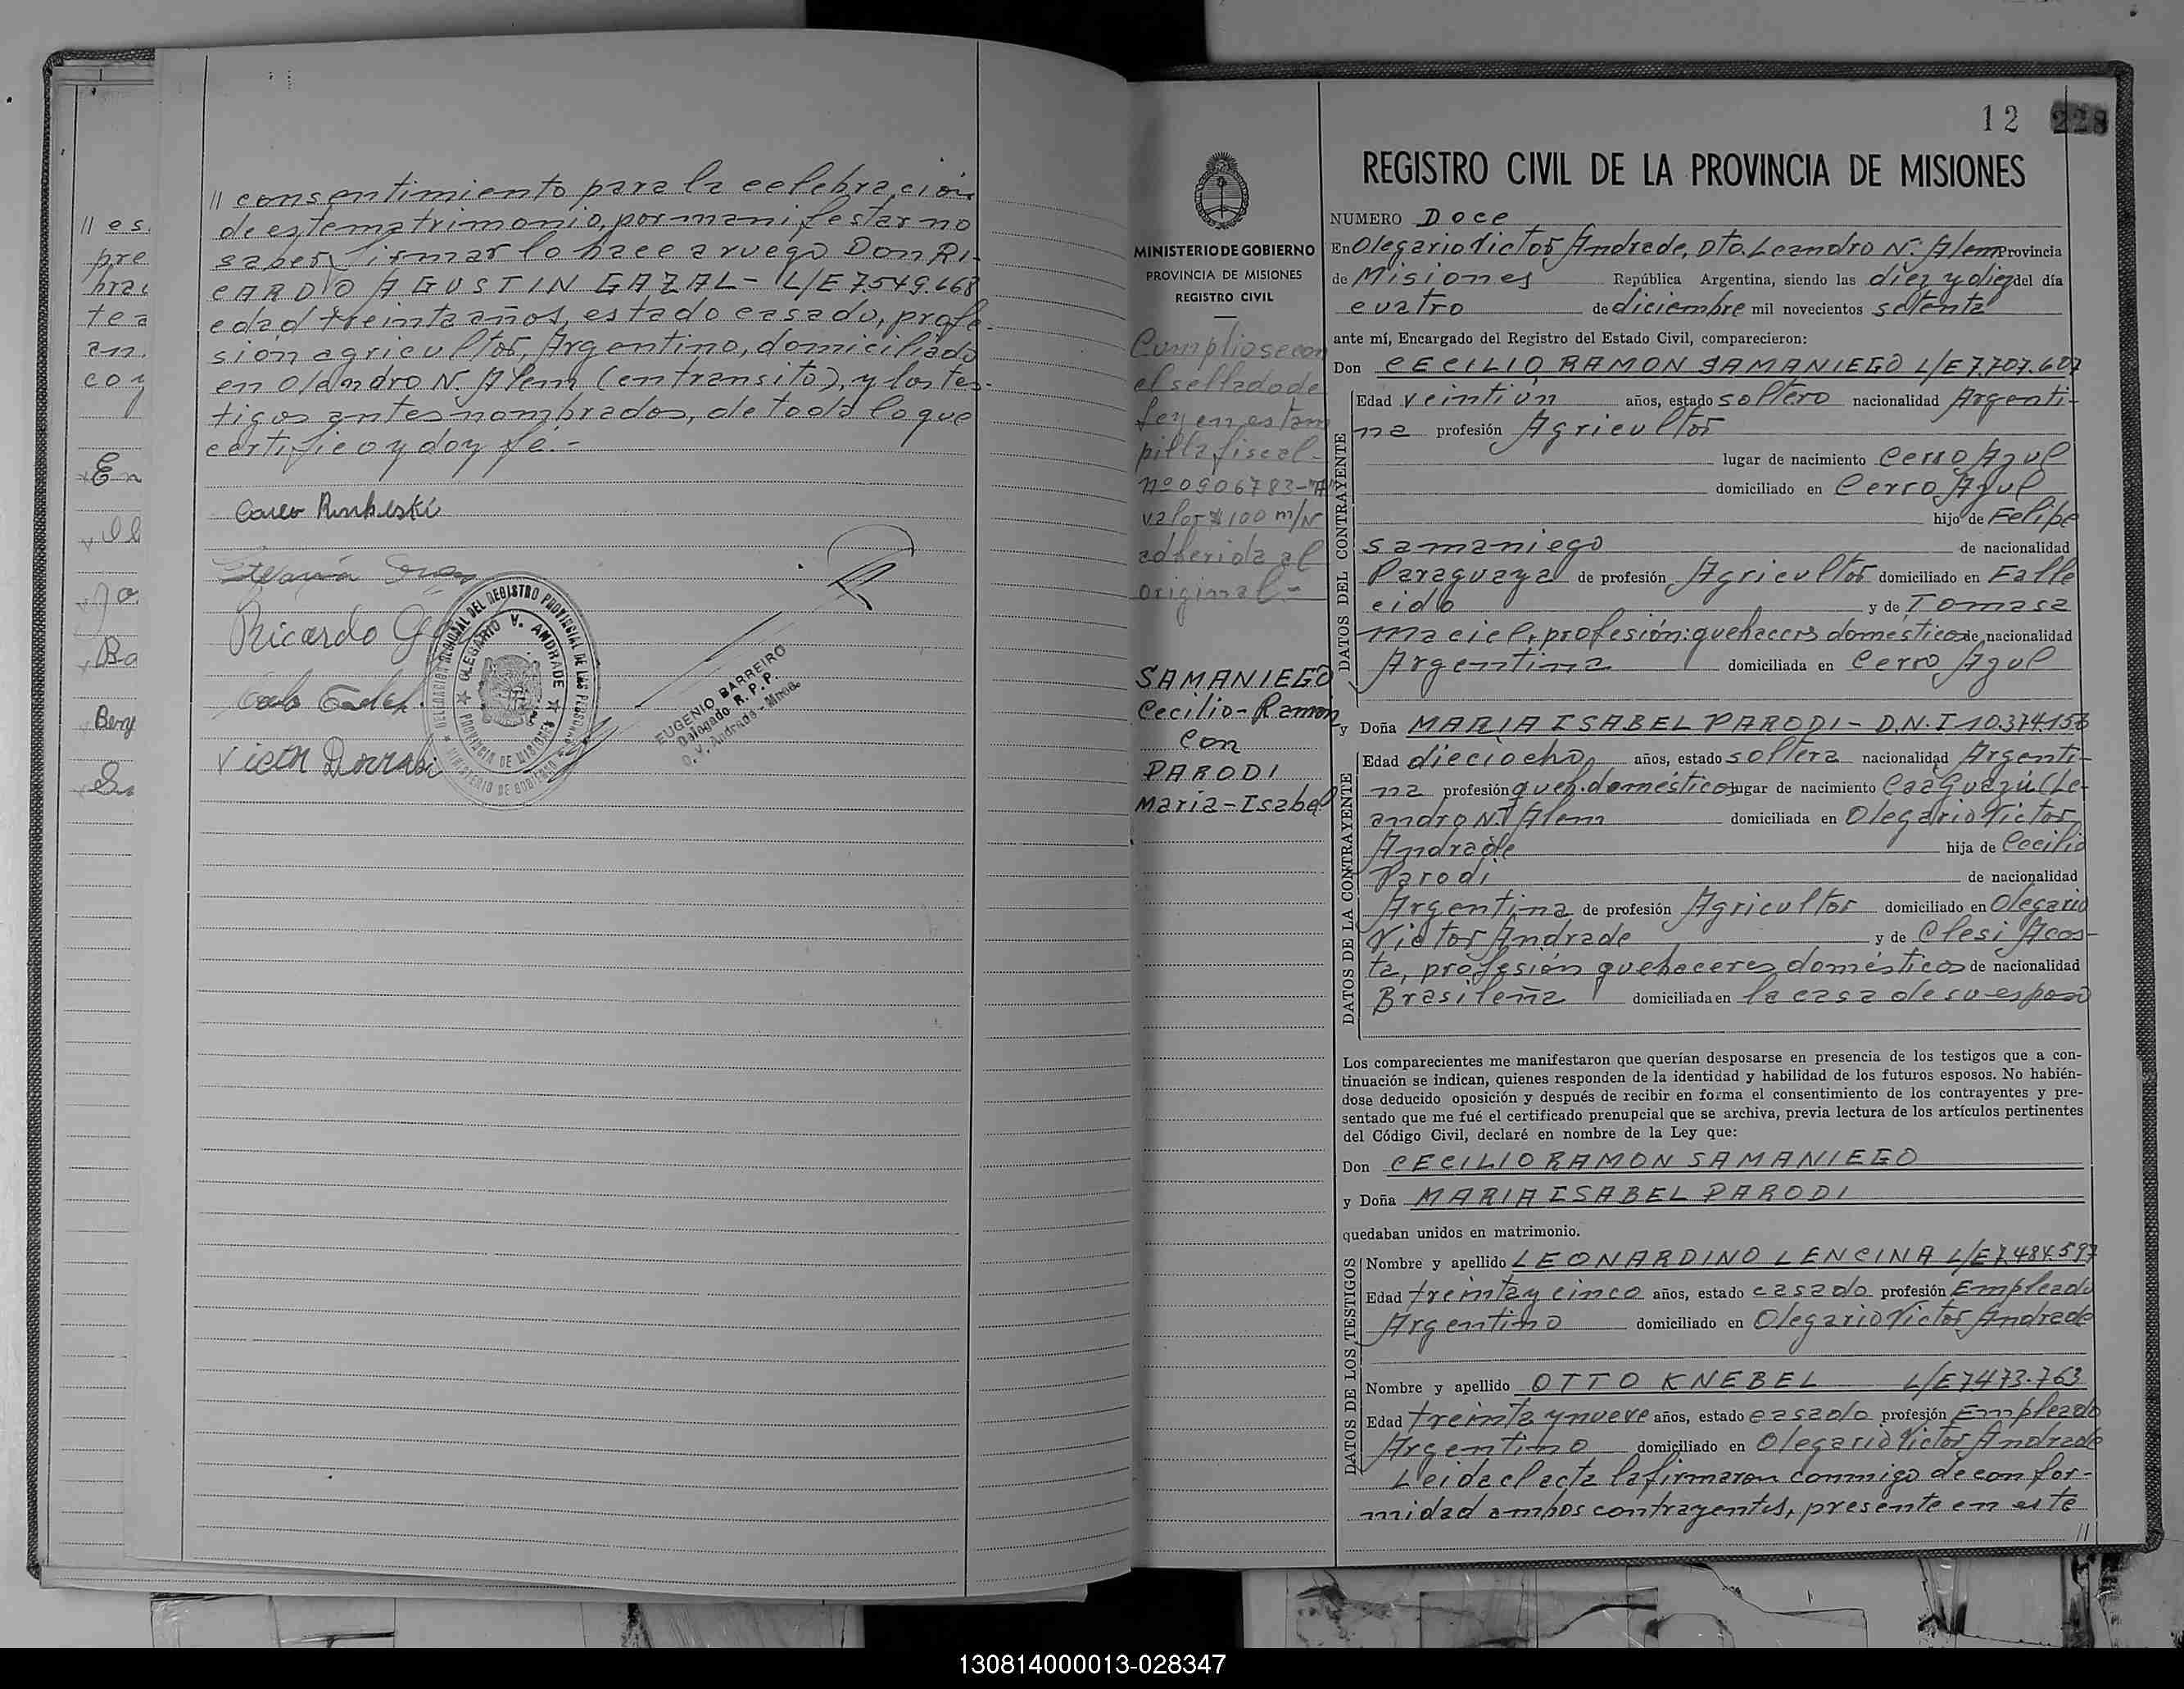 // es.
pre
hra
te a
an.
co y
En
// consentimiento para la celebración
de estematrimonio, por manifestar no
saber firmar lo hace a ruego Don RI-
CARDO AGUSTIN GAZAL - L/E 7.549.668
edad treinta años, estado casado, profe-
sión agricultor, Argentino, domiciliado
en Oleandro N. Alem (en transito), y los tes-
tigos antes nombrados, de todo lo que
certifico y doy fé.-
Ricardo
Victor
DELEGACION REGIONAL DEL REGISTRO PROVINCIAL DE LAS PERSONAS
OLEGARIO V. ANDRADE
PROVINCIA DE MISIONES
MINISTERIO DE GOBIERNO
EUGENIO BARREIRO
Delegado R.P.P.
O. V. Andrade - Mnes.
MINISTERIO DE GOBIERNO
PROVINCIA DE MISIONES
REGISTRO CIVIL
Cumpliose con
el sellado de
ley en estam
pilla fiscal-
nº 0906783-"A"
valor $ 100 m/N
adherida al
original.-
SAMANIEGO
Cecilio-Ramon
con
PARODI
Maria-Isabel
12 228
REGISTRO CIVIL DE LA PROVINCIA DE MISIONES
NUMERO Doce
En Olegario Victor Andrade, Dto. Leandro N. Alem Provincia
de Misiones República Argentina, siendo las diez y diez del día
cuatro de diciembre mil novecientos setenta
ante mí, Encargado del Registro del Estado Civil, comparecieron:
Don CECILIO RAMON SAMANIEGO L/E 7.707.607
DATOS DEL CONTRAYENTE
Edad veintiún años, estado soltero nacionalidad Argenti-
na profesión Agricultor
lugar de nacimiento Cerro Azul
domiciliado en Cerro Azul
hijo de Felipe
Samaniego de nacionalidad
Paraguaya de profesión Agricultor domiciliado en Falle
cido y de Tomasa
Maciel, profesión: quehaceres domésticos de nacionalidad
Argentina domiciliada en Cerro Azul
y Doña MARIA ISABEL PARODI - D.N.I 10.374.156
DATOS DE LA CONTRAYENTE
Edad dieciocho años, estado soltera nacionalidad Argenti-
na profesión queh. domésticos lugar de nacimiento Caaguazú (Le-
andro N. Alem domiciliada en Olegario Victor
Andrade hija de Cecilio
Parodi de nacionalidad
Argentina de profesión Agricultor domiciliado en Olegario
Victor Andrade y de Clesi Acos-
ta, profesión quehaceres domésticos de nacionalidad
Brasileña domiciliada en la casa de su esposo
Los comparecientes me manifestaron que querían desposarse en presencia de los testigos que a con-
tinuación se indican, quienes responden de la identidad y habilidad de los futuros esposos. No habién-
dose deducido oposición y después de recibir en forma el consentimiento de los contrayentes y pre-
sentado que me fué el certificado prenupcial que se archiva, previa lectura de los artículos pertinentes
del Código Civil, declaré en nombre de la Ley que:
Don CECILIO RAMON SAMANIEGO
y Doña MARIA ISABEL PARODI
quedaban unidos en matrimonio.
DATOS DE LOS TESTIGOS
Nombre y apellido LEONARDINO LENCINA L/E 7.484.597
Edad treinta y cinco años, estado casado profesión Empleado
Argentino domiciliado en Olegario Victor Andrade
Nombre y apellido OTTO KNEBEL L/E 7473.763
Edad treinta y nueve años, estado casado profesión Empleado
Argentino domiciliado en Olegario Victor Andrade
Leida el acta la firmaron conmigo de confor-
midad ambos contrayentes, presente en este
//
130814000013-028347